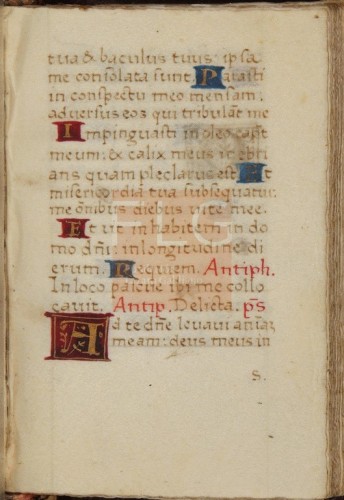 tua & baculus tuus: ipsa
me consolata sunt. Parasti
in conspectu meo mensam.
aduersus eos qui tribulāt me
Impinguasti in oleo capt
meum: & calix meus inebri
ans quam pleclarus est. Et
misericordia tua subsequatur.
me om̄ibus diebus uite mee.
Et ut inhabitem in do
mo dn̄i: in longitudine di
erum. Requiem. Antiph.
In loco pascue ibi me collo
cauit. Antip. Delicta. ps̄
Ad te dn̄e leuaui aniaz
meam: deus meus in
S.